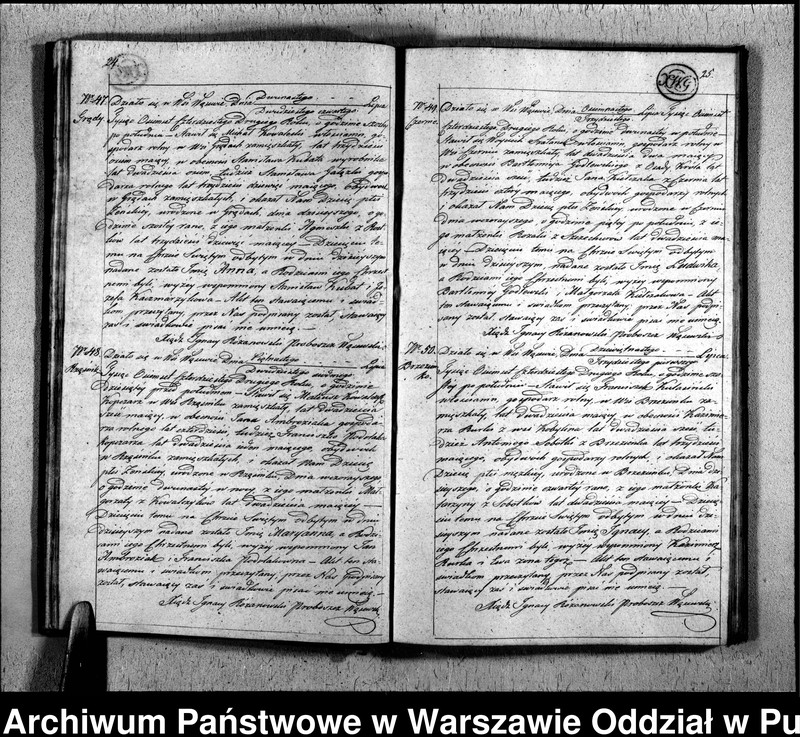 24.
No 47.
Grądy
Działo się w Wsi Wąsewie, Dnia Dwunastego / Dwudziestego czwartego Lipca
Tysiąc Ośmset Czterdziestego Drugiego Roku, o godzinie szóstej
po południu – Stawił się Kowalski, włościanin, gos-
podarz rolny w Wsi Grądach zamieszkały, lat trzydzieści
ośm mający, w obecności Stanisława Kudata wyrobnika
lat dwadzieścia ośm, tudzież Stanisława gospo-
darza rolnego lat trzydzieści dziewięć mającego, obydwóch
w Grądach zamieszkałych, i okazał Nam Dziecię płci
Żeńskiej, urodzone w Grądach, dnia dzisiejszego, o go-
dzinie szóstej rano, z jego małżonki Agnieszki z
lat trzydzieści dziewięć mającej – Dziecięciu te-
mu na Chrzcie Świętym odbytym w dniu dzisiejszym
nadane zostało Imię Anna, a Rodzicami jego Chrzest-
nemi byli, wyżej wspomniony Stanisław Kudat i Jó-
zefa Kaczmarzykowa – Akt ten stawającemu i świad-
kom przeczytany, przez Nas podpisany został, stawający
zaś i świadkowie pisać nie umieją. –
Xiądz Ignacy Rożanowski Proboszcz Wąsewski.
No 48.
Rząśnik
Działo się w Wsi Wąsewie, Dnia Piętnastego / Dwudziestego siódmego Lipca
Tysiąc Ośmset Czterdziestego Drugiego Roku, o godzinie
Dziesiątej przed południem – Stawił się Mateusz Kowalczyk
Kopczarz w Wsi Rząśniku zamieszkały, lat dwadzieścia
sześć mający, w obecności Jana Ambroziaka gospoda-
rza rolnego lat czterdzieści, tudzież Franciszka
lat dwadzieścia jeden mającego, obydwóch
w Rząśniku zamieszkałych, i okazał Nam Dziecię
płci Żeńskiej, urodzone w Rząśniku, Dnia wczorajszego,
o godzinie dwunastej w nocy, z jego małżonki Mał-
gorzaty z lat dwadzieścia mającej –
Dziecięciu temu na Chrzcie Świętym odbytym w dniu
dzisiejszym nadane zostało Imię Maryanna, a Rodzi-
cami jego Chrzestnemi byli, wyżej wspomniony Jan
Ambroziak i Franciszka – Akt ten sta-
wającemu i świadkom przeczytany, przez Nas podpisany
został, stawający zaś i świadkowie pisać nie umieją. –
Xiądz Ignacy Rożanowski Proboszcz Wąsewski
25.
No 49.
Działo się w Wsi Wąsewie, Dnia Ośmnastego / Trzydziestego Lipca Tysiąc Ośmset
Czterdziestego Drugiego Roku, o godzinie dwunastej w południe
Stawił się Wojciech włościanin, gospodarz rolny w
Wsi zamieszkały, lat dwadzieścia dwa mający
w obecności Bartłomieja z Osady lat
Dwadzieścia sześć, tudzież Jana z lat
trzydzieści cztery mającego, obydwóch gospodarzy rolnych
i okazał Nam Dziecię płci Żeńskiej, urodzone w
dnia wczorajszego o godzinie piątej po południu, z je-
go małżonki Rozalii z lat dwadzieścia ma-
jącej – Dziecięciu temu na Chrzcie Świętym odbytym
w dniu dzisiejszym, nadane zostało Imię Ludwika,
a Rodzicami jego Chrzestnemi byli, wyżej wspomniony
Bartłomiej i Małgorzata – Akt
ten stawającemu i świadkom przeczytany, przez Nas podpi-
sany został, stawający zaś i świadkowie pisać nie umieją.
Xiądz Ignacy Rożanowski Proboszcz Wąsewski
No 50.
Brzezin-
ko.
Działo się w Wsi Wąsewie, Dnia Dziewiętnastego / Trzydziestego pierwszego Lipca
Tysiąc Ośmset Czterdziestego Drugiego Roku, o godzinie szó-
stej po południu – Stawił się Franciszek
włościanin, gospodarz rolny w Wsi Brzezinku za-
mieszkały, lat dwadzieścia mający, w obecności Kazimie-
rza z wsi Kobylina lat dwadzieścia sześć, tu-
dzież Antoniego Sobotki z Brzezinka lat trzydzieści
mającego, obydwóch gospodarzy rolnych, i okazał Nam
Dziecię płci męzkiej, urodzone w Brzezinku, Dnia dzi-
siejszego, o godzinie czwartej rano, z jego małżonki Ka-
tarzyny z Sobotków lat dwadzieścia mającej – Dziecię-
ciu temu na Chrzcie Świętym odbytym w dniu dzi-
siejszym nadane zostało Imię Ignacy, a Rodzicami
jego Chrzestnemi byli, wyżej wspomniony Kazimierz
i Ewa żona tegoż – Akt ten stawającemu i
świadkom przeczytany, przez Nas podpisany został,
stawający zaś i świadkowie pisać nie umieją. –
Xiądz Ignacy Rożanowski Proboszcz Wąsewski
Archiwum Państwowe w Warszawie Oddział w Pu